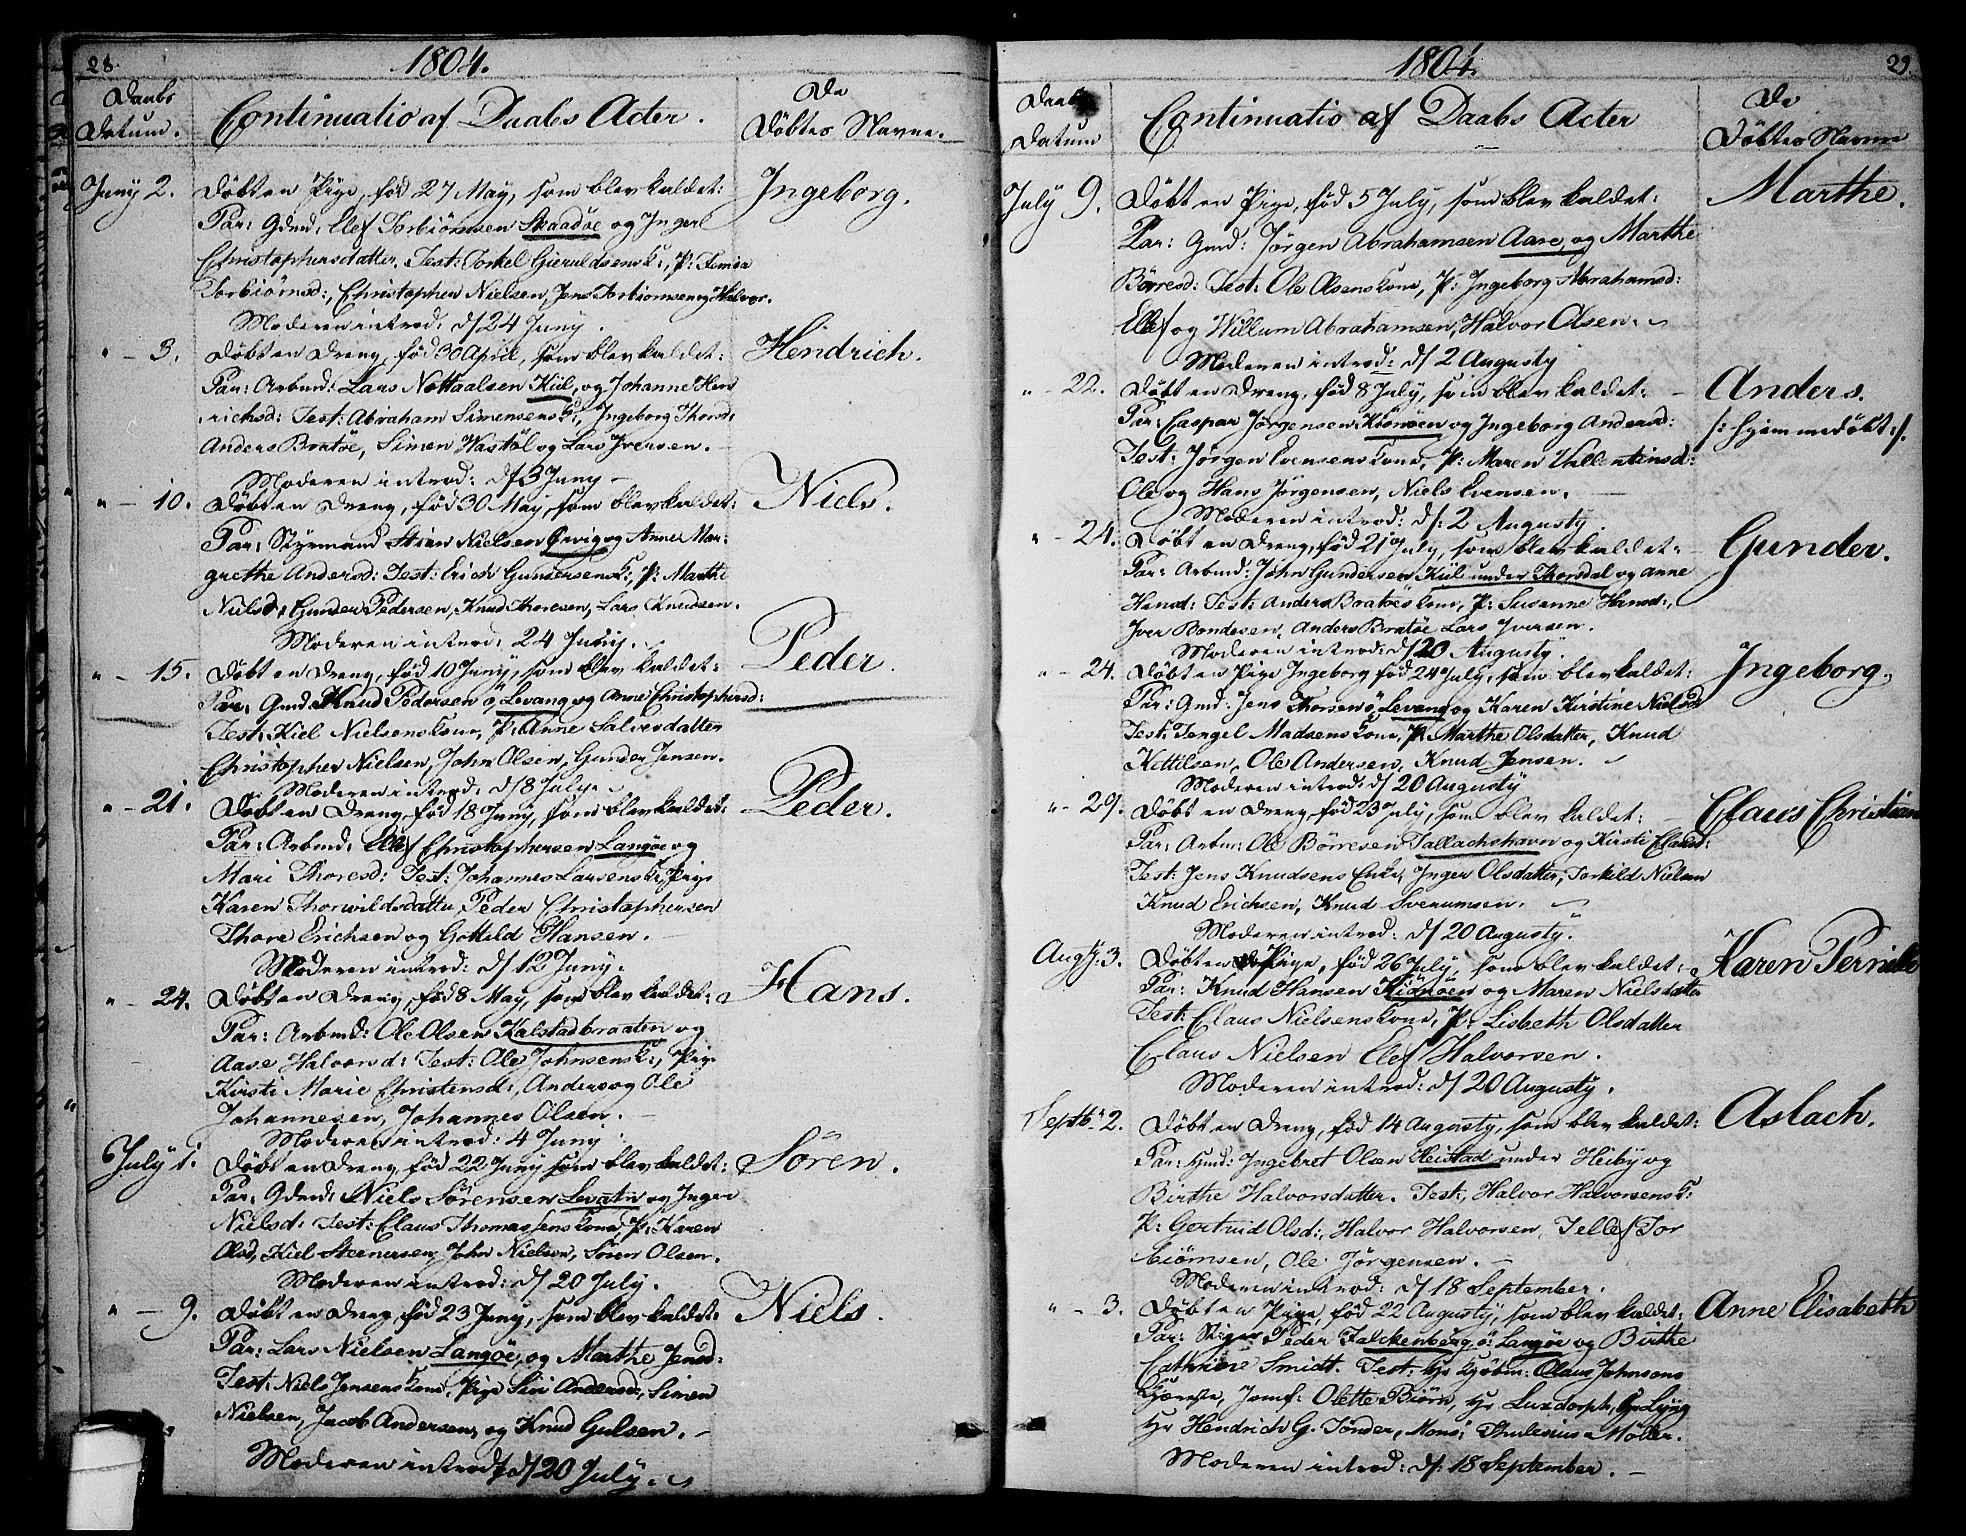 28.
1804.
Daabs
Datum.
Continuatio af Daabs Acter.
De
Döbtes Navne.
Juny 2.
Döbt en Pige, fød 27 May, som blev kaldet:
Ingeborg.
Par: Gdmd: Elef Torbiörnsen Skaadöe og Inger
Christophersdatter. Test: Torkel Gieruldsens K:, P:
Torbiörnsd:, Christopher Nielsen, Jens Torbiörnsen og Halvor.
Moderen introd: d/ 24 Juny.
" - 3.
Döbt en Dreng, fød 30 April, som blev kaldet:
Hendrich.
Par: Arbmd: Lars Nottaalsen Kiil, og Johanne Hen
richsd: Test: Abraham Simensens K:, Ingeborg Thorsd:
Anders Bratöe, Simen Wastöl og Lars Iversen.
Moderen introd: d/ 3 Juny
" - 10.
Döbt en Dreng, fød 30 May, som blev kaldet:
Niels.
Par: Styrmand Stian Nielsen Örvig og Anne Mar-
grethe Andersd: Test: Erich Gundersens K:, P: Marthe
Nielsd:, Gunder Pedersen, Knud Thoresen, Lars Knudsen.
Moderen introd: 24 Juny.
" - 15.
Döbt en Dreng, fød 10 Juny, som blev kaldet:
Peder.
Par: Gmd Knud Pedersen ö. Levang og Anne Christophersd:
Test: Kiel Nielsens Kone, P: Anne Salvesdatter
Christopher Nielsen, John Olsen, Gunder Jensen.
Moderen introd: d/ 8 July.
" - 21.
Döbt en Dreng, fød 18 Juny, som blev kaldet:
Peder.
Par: Arbmd: Ellef Christophersen Langöe og
Mari Thoresd: Test: Johannes Larsens K:, Pige
Karen Thorwildsdatter, Peder Christophersen
Thore Erichsen og Gotteld Hansen.
Moderen introd: d/ 12 Juny.
" - 24.
Döbt en Dreng, fød 8 May, som blev kaldet:
Hans.
Par: Arbmd: Ole Olsen Kalstadbraaten og
Aase Halvorsd: Test: Ole Johnsens K:, Pige
Kirsti Marie Christensd:, Anders og Ole
Johannesen, Johannes Olsen.
Moderen introd: 4 Juny
July 1.
Döbt en Dreng, fød 22 Juny som blev kaldet:
Sören.
Par: Gdmd: Niels Sörensen Levatn og Inger
Nielsd: Test: Claus Thomassens Kone, P: Karen
Olsd, Kiel Steenersen, John Nielsen, Sören Olsen.
Moderen introd: d/ 20 July.
" - 9.
Döbt en Dreng, fød 23 Juny, som blev kaldet:
Niels.
Par: Lars Nielsen Langöe, og Marthe Jensd:
Test: Niels Jensens Kone, Pige Siri Andersd, Simen
Nielsen, Jacob Andersen, og Knud Gulsen.
Moderen introd: d/ 20 July.
29.
1804.
Daabs
Datum
Continuatio af Daabs Acter
De
Döbtes Navne
July 9.
Döbt en Pige, fød 5 July, som blev kaldet:
Marthe.
Par: Gmd: Jørgen Abrahamsen Aare, og Marthe
Börresd: Test: Ole Olsens Kone, P: Ingeborg Abrahamsd:
Ellef og Willum Abrahamsen, Halvor Olsen.
Moderen introd: d/ 2 Augusty
" - 22.
Döbt en Dreng, fød 8 July, som blev kaldet:
Anders.
Par: Caspar Jørgensen og Ingeborg Andersd:
/: hjemmedöbt :/.
Test: Jørgen Evensens Kone, P: Maren Vallentinsd:
Ole og Hans Jørgensen, Niels Evensen.
Moderen introd: d/: 2 Augusty.
" - 24.
Döbt en Dreng, fød 21 July, som blev kaldet:
Gunder.
Par: Arbmd: John Gundersen Kiil under Thorsdal og Anne
Hansd: Test: Anders Bratöes Kone, P: Susanne Hansd:,
Iver Bondesen, Anders Bratöe Lars Iversen.
Moderen introd: d/ 20 Augusty.
" - 24.
Döbt en Pige Ingeborg fød 24 July, som blev kaldet:
Ingeborg.
Par: Gmd: Jens Thorsen ö. Levang og Karen Kirstine Nielsd
Test: Tengel Madsens Kone, P: Marthe Olsdatter, Knud
Kettilsen, Ole Andersen, Knud Jensen.
Moderen introd: d/ 20 Augusty
" - 29.
Döbt en Dreng, fød 23 July, som blev kaldet:
Claus Christian
Par: Arbm: Ole Börresen Tallachshavn og Kirsti Clausd:
Test: Jens Knudsens Enke, Inger Olsdatter, Torkild Nielsen
Knud Erichsen, Knud Sverumsen.
Moderen introd: d/ 20 Augusty.
Augy. 3.
Döbt en Pige, fød 26 July, som blev kaldet:
Karen Pernille
Par: Knud Hansen og Maren Nielsdatter
Test: Claus Nielsens Kone, P: Lisbeth Olsdatter
Claus Nielsen Elef Halvorsen.
Moderen introd: d/ 20 Augusty.
Septb: 2.
Döbt en Dreng, fød 14 Augusty, som blev kaldet:
Aslach.
Par: Huusmd: Ingebret Olsen Heistad under Heiby og
Birthe Halvorsdatter. Test:, Halvor Halvorsens K:
P: Gertrud Olsd:, Halvor Halvorsen, Tellef Tor
biörnsen, Ole Jørgensen.
Moderen introd: d/ 18 September.
" - 3.
Döbt en Pige, fød 22 Augusty, som blev kaldet:
Anne Elisabeth
Par: Peder Falckenberg ö: Langöe og Birthe
Cathrine Smidt. Test: Hr Kjöbm: Claus Johnsens
Kjæreste, Jomf: Olette Biörn, Hr Luxdorph, Hr Lyng
Hr Hendrich G. Tönder, Mons: Thulesius Möller.
Moderen introd: d/: 18 September.